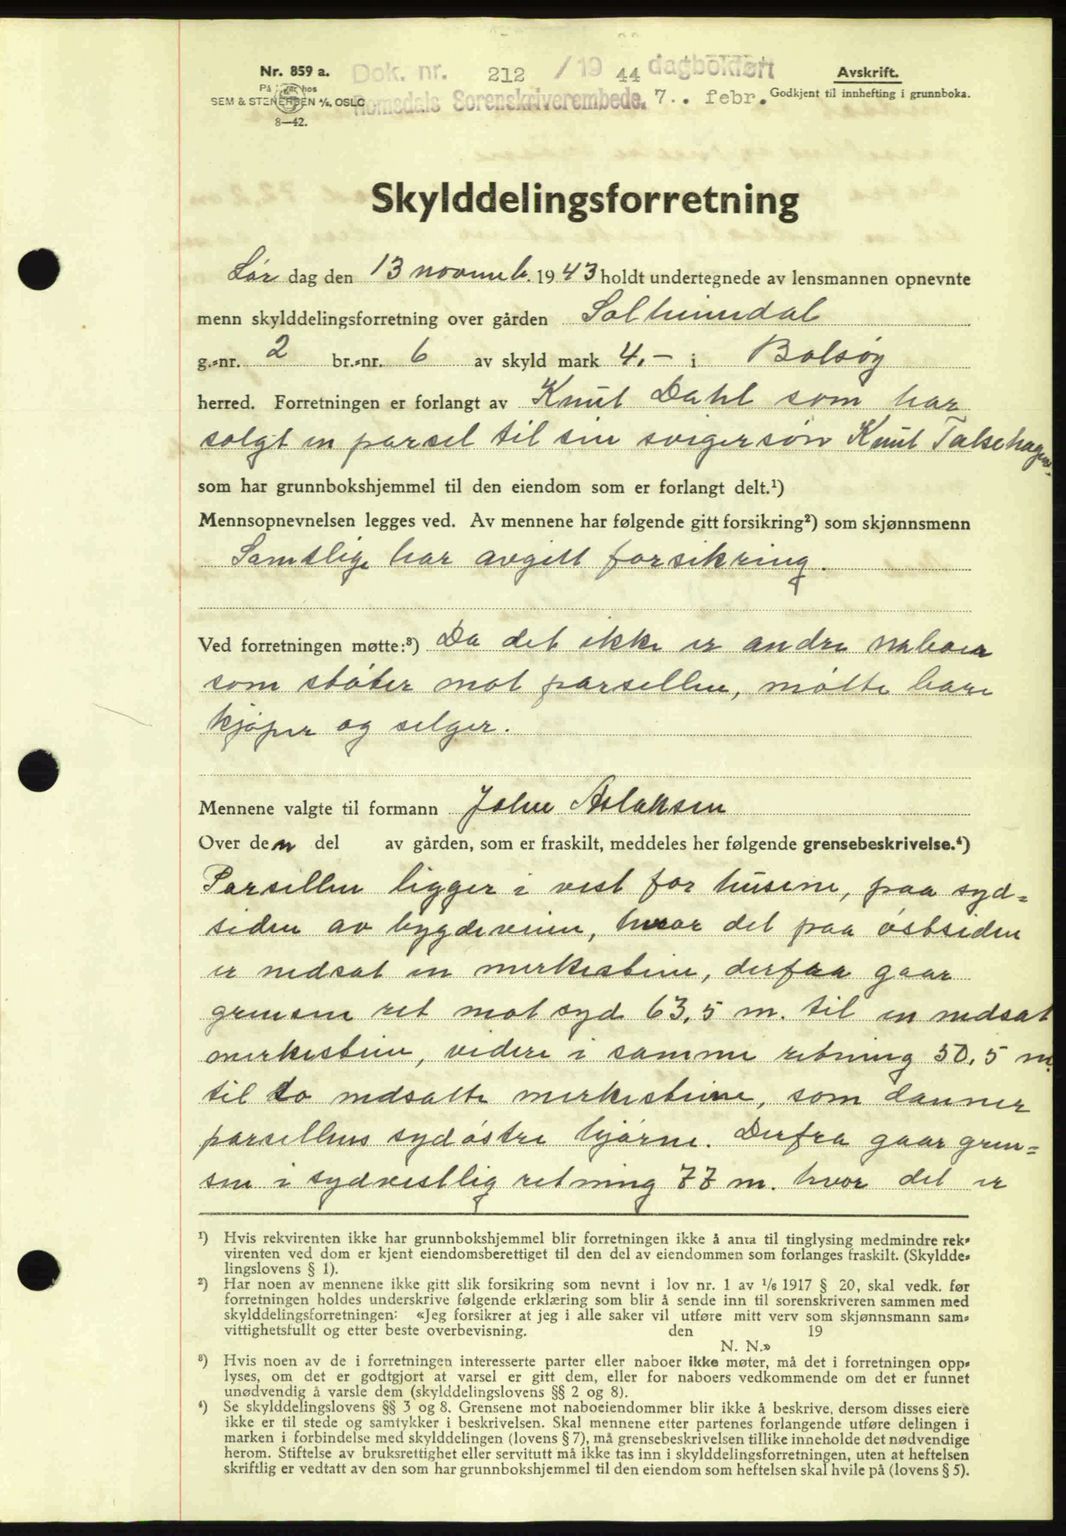 Nr. 859 a.
På hos
SEM & STENERSEN A/S, OSLO
8—42.
Dok. nr. 212 / 19 44 dagbokført
Romsdals Sorenskriverembede. 7. febr.
Avskrift.
Godkjent til innhefting i grunnboka.
Skylddelingsforretning
Lør dag den 13 novemb. 1943 holdt undertegnede av lensmannen opnevnte
menn skylddelingsforretning over gården Solheimdal
g.-nr. 2 br.-nr. 6 av skyld mark 4.— i Bolsøy
herred. Forretningen er forlangt av Knut Dahl som har
solgt en parsel til sin svigersøn Knut Talsethagen
som har grunnbokshjemmel til den eiendom som er forlangt delt.¹)
Mennsopnevnelsen legges ved. Av mennene har følgende gitt forsikring²) som skjønnsmenn
Samtlige har avgitt forsikring.
Ved forretningen møtte:³) Da det ikke er andre naboer
som støter mot parsellen, møtte bare
kjøper og selger.
Mennene valgte til formann John Aslaksen
Over den del av gården, som er fraskilt, meddeles her følgende grensebeskrivelse.⁴)
Parsellen ligger i vest for husene, paa syd=
siden av bygdeveien, hvor det paa østsiden
er nedsat en merkestein, derfra gaar
grensen ret mot syd 63,5 m. til en nedsat
merkestein, videre i samme retning 50,5 m.
til to nedsatte merkesteine, som danner
parsellens sydøstre hjørne. Derfra gaar gren=
sen i sydvestlig retning 77 m. hvor det er
¹) Hvis rekvirenten ikke har grunnbokshjemmel blir forretningen ikke å anta til tinglysing medmindre rek-
virenten ved dom er kjent eiendomsberettiget til den del av eiendommen som forlanges fraskilt. (Skyldde-
lingslovens § 1).
²) Har noen av mennene ikke gitt slik forsikring som nevnt i lov nr. 1 av 1/6 1917 § 20, skal vedk. før
forretningen holdes underskrive følgende erklæring som blir å sende inn til sorenskriveren sammen med
skylddelingsforretningen: «Jeg forsikrer at jeg i alle saker vil utføre mitt verv som skjønnsmann sam-
vittighetsfullt og etter beste overbevisning. den 19
N. N.»
³) Hvis noen av de i forretningen interesserte parter eller naboer ikke møter, må det i forretningen opp-
lyses, om det er godtgjort at varsel er gitt dem, eller for naboers vedkommende om det er funnet
unødvendig å varsle dem (skylddelingslovens §§ 2 og 8).
⁴) Se skylddelingslovens §§ 3 og 8. Grensene mot naboeiendommer blir ikke å beskrive, dersom disses eiere
ikke er til stede og samtykker i beskrivelsen. Skal mennene etter partenes forlangende utføre delingen i
marken i forbindelse med skylddelingen (lovens § 7), må grensebeskrivelsen tillike inneholde det nødvendige
herom. Stiftelse av bruksrettighet eller servitutt må ikke tas inn i skylddelingsforretningen, uten at heftelsen
skriftlig er vedtatt av den som har grunnbokshjemmel til den eiendom som heftelsen skal hvile på (lovens § 5).